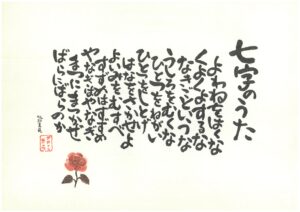 七字のうた
よわねをはくな
くよくよするな
なきごというな
うしろをむくな
ひとつをねがい
ひとつをしとげ
はなをさかせよ
よいみをむすべ
すずめはすずめ
やなぎはやなぎ
まつにまつかぜ
ばらにばらのか